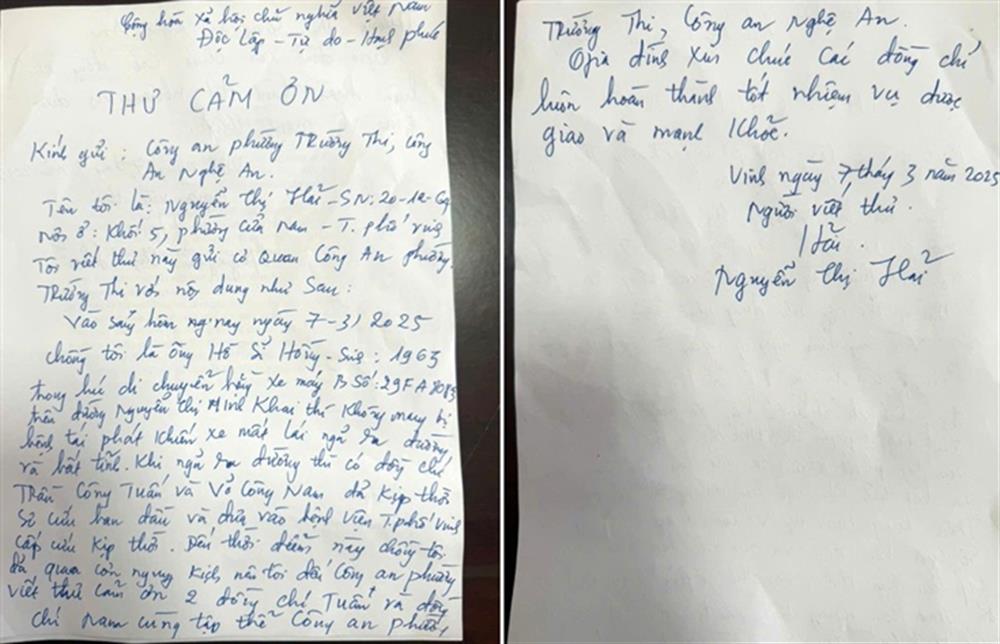 Cộng hòa xã hội chủ nghĩa việt Nam
Độc lập - Tự do - Hạnh phúc
THƯ CẢM ƠN
Kính gửi: Công an phường TRường Thi, Công
An Nghệ An.
Tên tôi là: Nguyễn Thị Hải - SN: 20-12-69
Nơi ở: Khối 5, phường cửa nam - T. phố vinh
Tôi viết thư này gửi cơ quan Công An phường
TRường Thi với nội dung như sau:
Vào sáng hôm nay ngày 7-3/2025
chồng tôi là ông Hồ Sỉ Hồng - Sinh: 1963
trong lúc di chuyển bằng xe máy B Số: 29FA
trên đường Nguyễn Thị Minh Khai thì không may bị
bệnh tái phát khiến xe mất lái ngã ra đường
và bất tỉnh. Khi ngã ra đường thì có đồng chí
Trần Công Tuấn và Võ Công Nam đã kịp thời
Sơ cứu ban đầu và đưa vào bệnh viên T.phố vinh
cấp cứu kịp thời. Đến thời điểm này chồng tôi
đã qua cơn nguy kịch nên tôi đến Công an phường
viết thư cảm ơn 2 đồng chí Tuấn và đồng
chí Nam cùng tập thể Công an phường
TRường Thi, Công an Nghệ An.
Gia đình xin chúc các đồng chí
luôn hoàn thành tốt nhiệm vụ được
giao và mạnh khỏe.
Vinh ngày 7 tháng 3 năm 2025
Người viết thư.
Hải.
Nguyễn Thị Hải